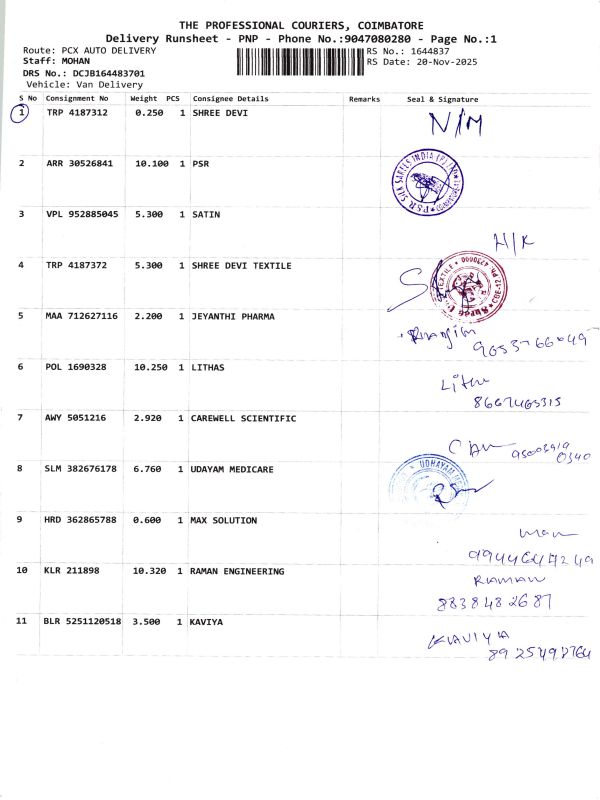 THE PROFESSIONAL COURIERS, COIMBATORE
Delivery Runsheet - PNP - Phone No.:9047080280 - Page No.:1
Route: PCX AUTO DELIVERY RS No.: 1644837
Staff: MOHAN RS Date: 20-Nov-2025
DRS No.: DCJB164483701
Vehicle: Van Delivery
S No Consignment No Weight PCS Consignee Details Remarks Seal & Signature
1 TRP 4187312 0.250 1 SHREE DEVI N/M
2 ARR 30526841 10.100 1 PSR
PSR SILK SAREES INDIA (P)
3 VPL 952885045 5.300 1 SATIN
H/K
4 TRP 4187372 5.300 1 SHREE DEVI TEXTILE
5 MAA 712627116 2.200 1 JEYANTHI PHARMA
6 POL 1690328 10.250 1 LITHAS
Lithu
8667463315
7 AWY 5051216 2.920 1 CAREWELL SCIENTIFIC
8 SLM 382676178 6.760 1 UDAYAM MEDICARE
UDHAYAM
9 HRD 362865788 0.600 1 MAX SOLUTION
10 KLR 211898 10.320 1 RAMAN ENGINEERING
RAMAN
8838482687
11 BLR 5251120518 3.500 1 KAVIYA
KAVIYA